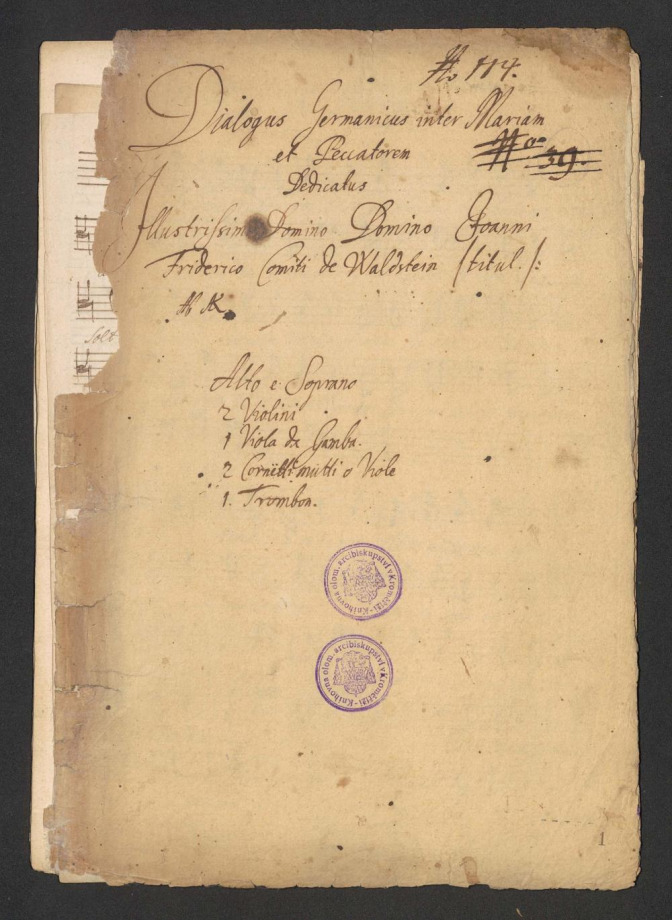 No 114.
Dialogus Germanicus inter Mariam
et Peccatorem
No 39.
Dedicatus
Illustrissimo Domino Domino Joanni
Friderico Comiti de Waldstein /titul./:
Ab
Alto e Soprano
2 Violini
1 Viola da Gamba.
2 Cornetti mutti o Viole
1. Trombon.
Knihovna olom. arcibiskupství v Kroměříži
Knihovna olom. arcibiskupství v Kroměříži
Solt
1